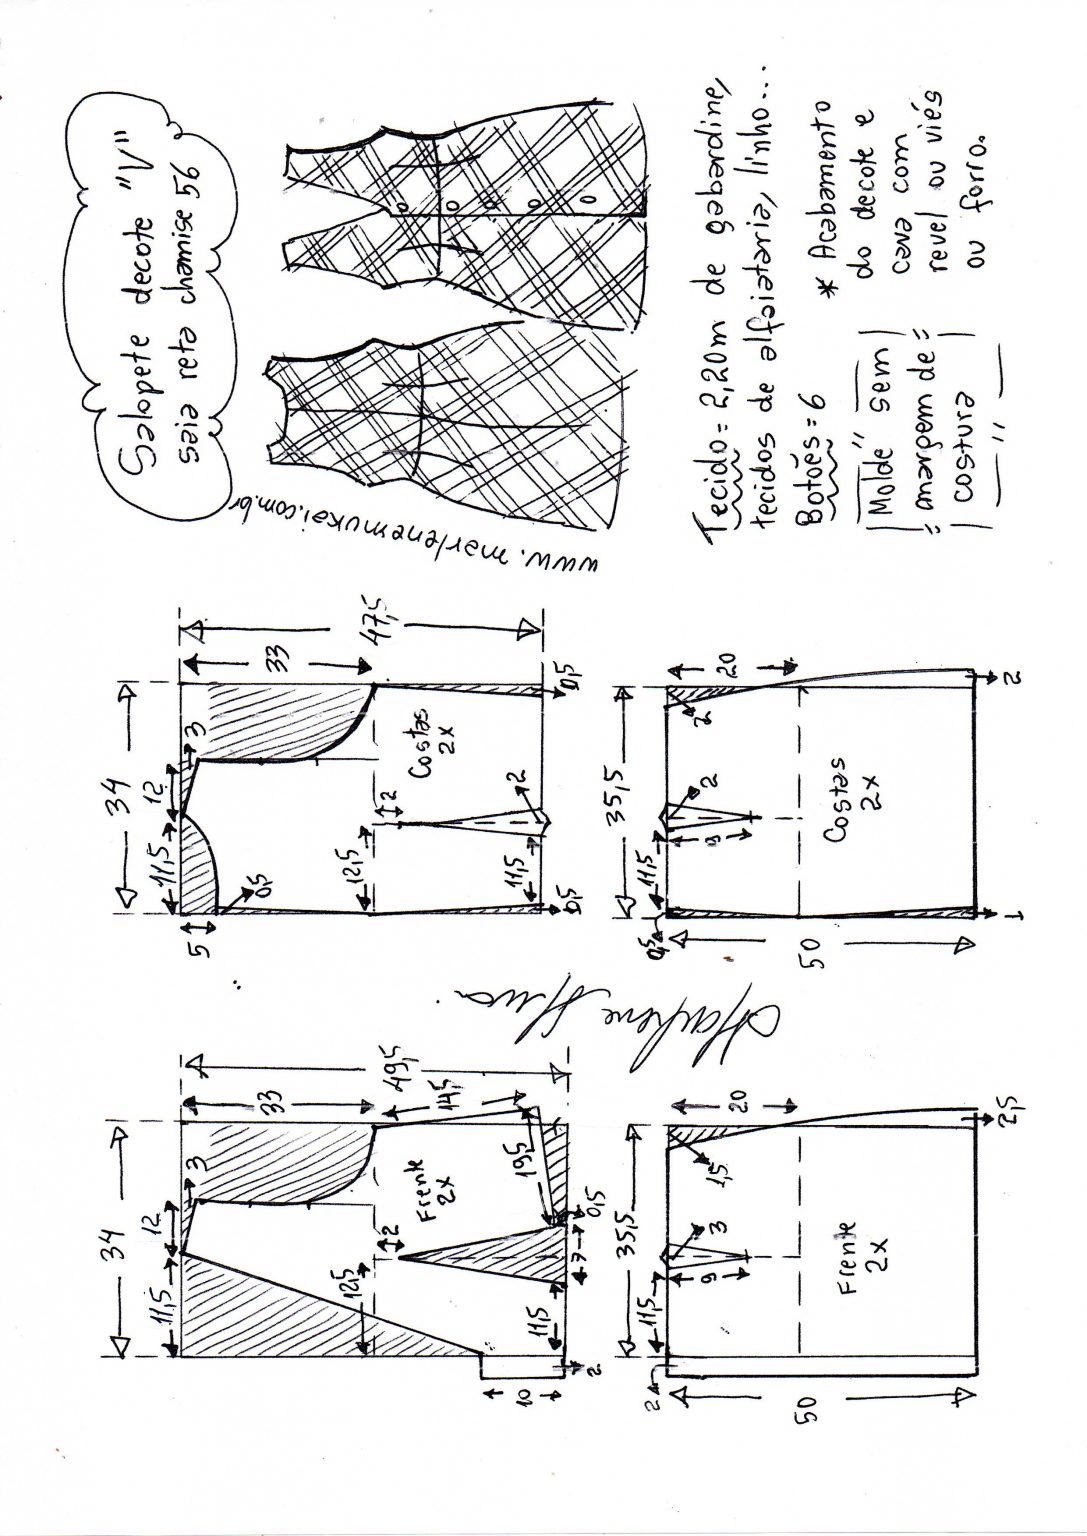 Salopete decote "V"
saia reta chamise 56
www.marlenemukai.com.br
Tecido = 2,20m de gabardine,
tecidos de alfaiataria, linho...
Botões = 6
Molde sem
margem de
costura
* Acabamento
do decote e
cava com
revel ou viés
ou forro.
34
11,5
12
3
33
49,5
14,5
19,5
Frente
2x
2
12,5
11,5
7
0,5
10
2
34
11,5
12
3
5
0,5
33
47,5
Costas
2x
2
12,5
11,5
2
0,5
0,5
35,5
11,5
2
9
3
1,5
20
Frente
2x
50
2,5
35,5
11,5
0,5
9
2
2
20
Costas
2x
50
1
2
Marlene